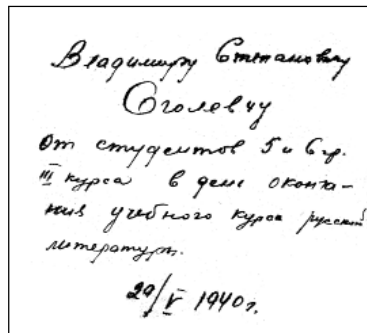 Владимиру Степановичу
Соолевчу
от студентов 5 и 6 гр.
III курса в день оконча-
ния учебного курса русской
литературы.
29/V 1940 г.